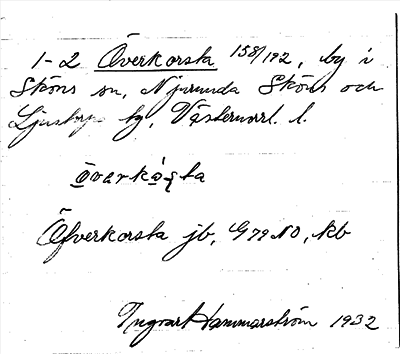 1-2 Överkorsta 158/192, by i
Sköns sn, Njurunda Sköns och
Ljustorps tg, Västernorrl. l.
Överko̱ṣta
Öfverkorsta jb, G 79 NO, kb
Ingvart Hammarström 1932